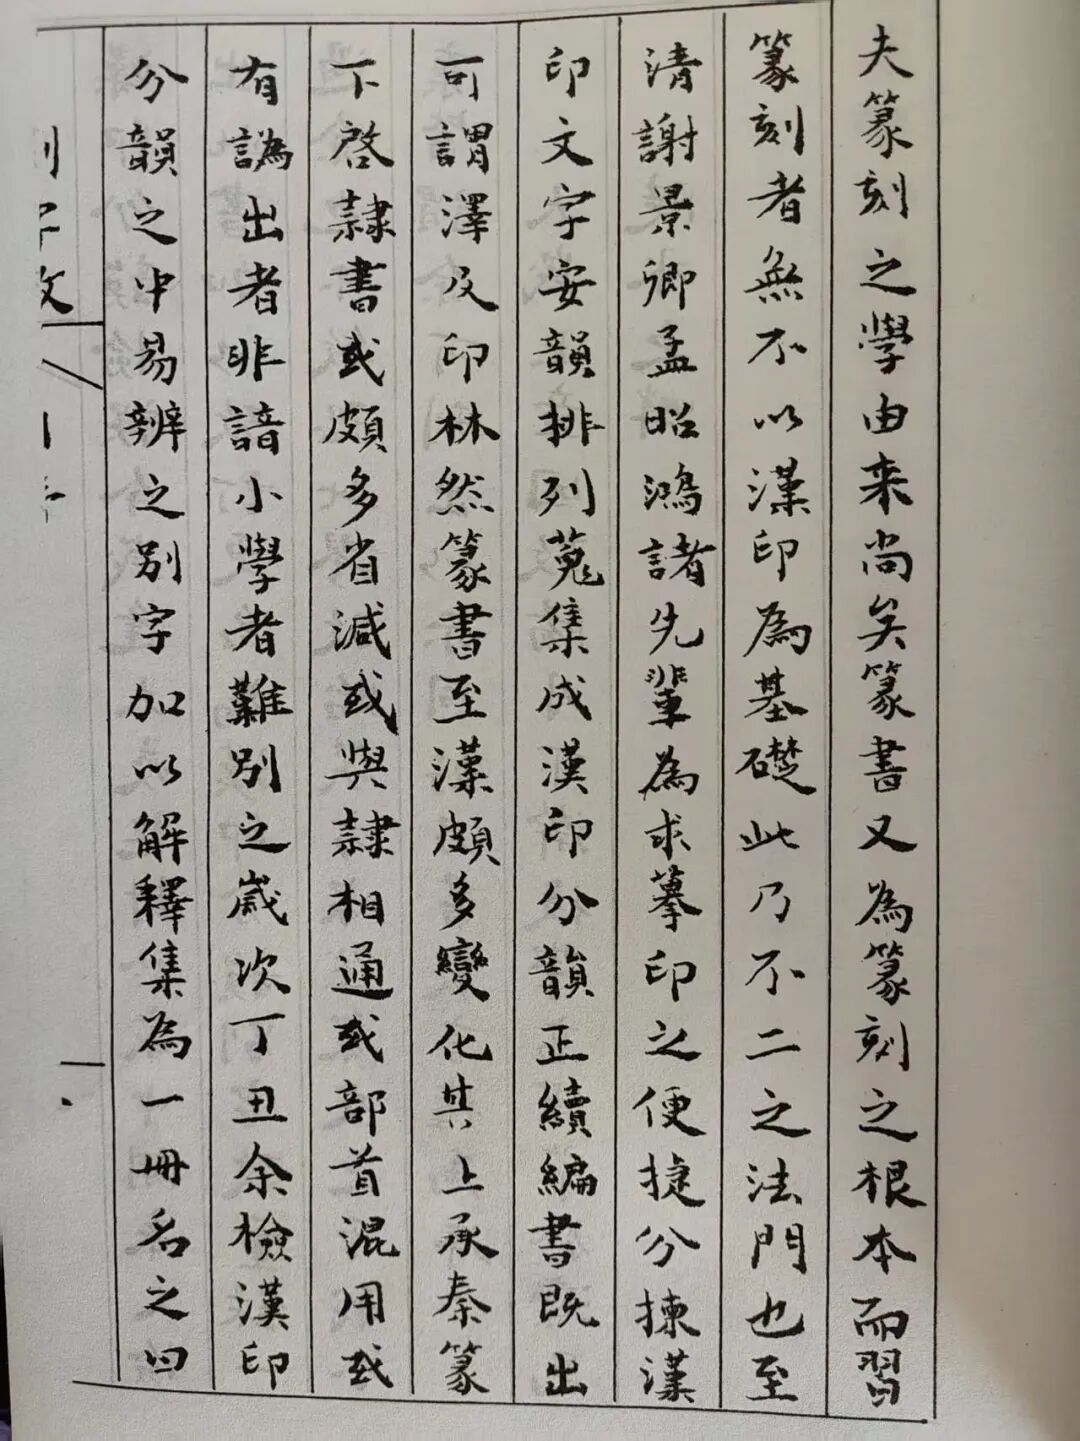 夫篆刻之學由来尚矣篆書又為篆刻之根本而習
篆刻者無不以漢印為基礎此乃不二之法門也至
清謝景卿孟昭鴻諸先輩為求摹印之便捷分揀漢
印文字安韻排列蒐集成漢印分韻正續編書既出
可謂澤及印林然篆書至漢頗多變化其上承秦篆
下啓隸書或頗多省減或與隸相通或部首混用或
有譌出者非諳小學者難別之歲次丁丑余檢漢印
分韻之中易辨之別字加以解釋集為一冊名之曰